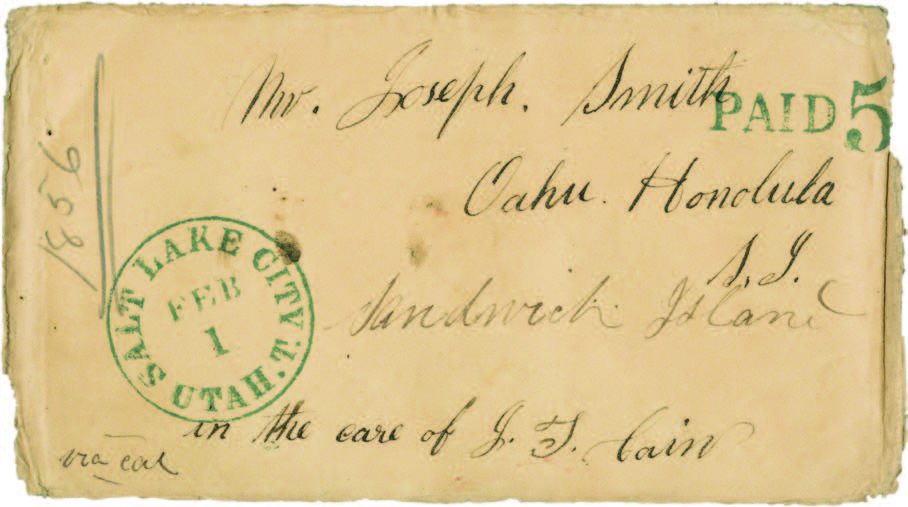 Mr. Joseph. Smith
PAID 5
Oahu. Honolula
S. I.
Sandwich Island
1856
SALT LAKE CITY. U.T.
FEB
1
UTAH.
in the care of J. T. Cain
via cal